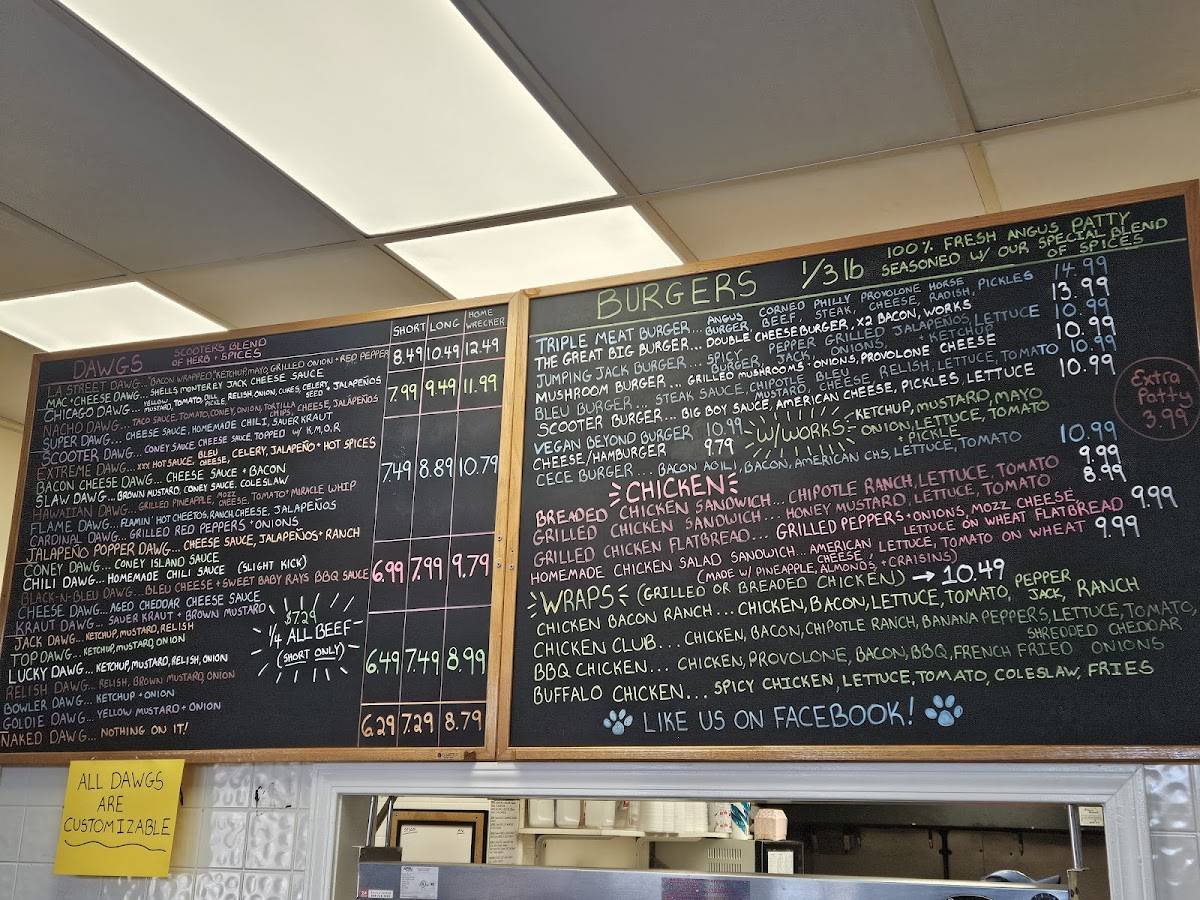 DAWGS SCOOTERS BLEND OF HERB + SPICES
SHORT LONG HOME WRECKER
LA STREET DAWG... BACON WRAPPED, KETCHUP, MAYO, GRILLED ONION + RED PEPPER 8.49 10.49 12.49
MAC + CHEESE DAWG... SHELLS MONTEREY JACK CHEESE SAUCE
CHICAGO DAWG... YELLOW MUSTARD, TOMATO, DILL PICKLE, RELISH, ONION, CUKES, CELERY SEED, JALAPEÑOS 7.99 9.49 11.99
NACHO DAWG... TACO SAUCE, TOMATO, CONEY, ONION, TORTILLA CHIPS, CHEESE, JALAPEÑOS
SUPER DAWG... CHEESE SAUCE, HOMEMADE CHILI, SAUER KRAUT
SCOOTER DAWG... CONEY SAUCE, CHEESE SAUCE, TOPPED W/ K,M,O,R
EXTREME DAWG... XXX HOT SAUCE, BLEU CHEESE, CELERY, JALAPEÑO + HOT SPICES
BACON CHEESE DAWG... CHEESE SAUCE + BACON
SLAW DAWG... BROWN MUSTARD, CONEY SAUCE, COLESLAW 7.49 8.89 10.79
HAWAIIAN DAWG... GRILLED PINEAPPLE, MOZZ CHEESE, TOMATO + MIRACLE WHIP
FLAME DAWG... FLAMIN' HOT CHEETOS, RANCH, CHEESE, JALAPEÑOS
CARDINAL DAWG... GRILLED RED PEPPERS + ONIONS
JALAPEÑO POPPER DAWG... CHEESE SAUCE, JALAPEÑOS + RANCH
CONEY DAWG... CONEY ISLAND SAUCE
CHILI DAWG... HOMEMADE CHILI SAUCE (SLIGHT KICK)
BLACK-N-BLEU DAWG... BLEU CHEESE + SWEET BABY RAYS BBQ SAUCE 6.99 7.99 9.79
CHEESE DAWG... AGED CHEDDAR CHEESE SAUCE
KRAUT DAWG... SAUER KRAUT + BROWN MUSTARD
JACK DAWG... KETCHUP, MUSTARD, RELISH
TOP DAWG... KETCHUP, MUSTARD, ONION
LUCKY DAWG... KETCHUP, MUSTARD, RELISH, ONION
RELISH DAWG... RELISH, BROWN MUSTARD, ONION 6.49 7.49 8.99
BOWLER DAWG... KETCHUP + ONION
GOLDIE DAWG... YELLOW MUSTARD + ONION
NAKED DAWG... NOTHING ON IT! 6.29 7.29 8.79
$7.29
1/4 ALL BEEF
(SHORT ONLY)
BURGERS 1/3 lb 100% FRESH ANGUS PATTY
SEASONED W/ OUR SPECIAL BLEND OF SPICES
TRIPLE MEAT BURGER... ANGUS BURGER, CORNED BEEF, PHILLY STEAK, PROVOLONE CHEESE, HORSE RADISH, PICKLES 14.99
THE GREAT BIG BURGER... DOUBLE CHEESEBURGER, x2 BACON, WORKS 13.99
JUMPING JACK BURGER... SPICY BURGER, PEPPER JACK, GRILLED ONIONS, JALAPEÑOS, LETTUCE + KETCHUP 10.99
MUSHROOM BURGER... GRILLED MUSHROOMS + ONIONS, PROVOLONE CHEESE 10.99
BLEU BURGER... STEAK SAUCE, CHIPOTLE MUSTARD, BLEU CHEESE, RELISH, LETTUCE, TOMATO 10.99
SCOOTER BURGER... BIG BOY SAUCE, AMERICAN CHEESE, PICKLES, LETTUCE 10.99
VEGAN BEYOND BURGER 10.99
CHEESE/HAMBURGER 9.79
W/WORKS KETCHUP, MUSTARD, MAYO
ONION, LETTUCE, TOMATO
+ PICKLE
CECE BURGER... BACON AOILI, BACON, AMERICAN CHS, LETTUCE, TOMATO 10.99
Extra Patty 3.99
CHICKEN
BREADED CHICKEN SANDWICH... CHIPOTLE RANCH, LETTUCE, TOMATO 9.99
GRILLED CHICKEN SANDWICH... HONEY MUSTARD, LETTUCE, TOMATO 8.99
GRILLED CHICKEN FLATBREAD... GRILLED PEPPERS + ONIONS, MOZZ CHEESE, LETTUCE ON WHEAT FLATBREAD 9.99
HOMEMADE CHICKEN SALAD SANDWICH... AMERICAN CHEESE, LETTUCE, TOMATO ON WHEAT 9.99
(MADE W/ PINEAPPLE, ALMONDS, + CRAISINS)
WRAPS (GRILLED OR BREADED CHICKEN) → 10.49
CHICKEN BACON RANCH... CHICKEN, BACON, LETTUCE, TOMATO, PEPPER JACK, RANCH
CHICKEN CLUB... CHICKEN, BACON, CHIPOTLE RANCH, BANANA PEPPERS, LETTUCE, TOMATO, SHREDDED CHEDDAR
BBQ CHICKEN... CHICKEN, PROVOLONE, BACON, BBQ, FRENCH FRIED ONIONS
BUFFALO CHICKEN... SPICY CHICKEN, LETTUCE, TOMATO, COLESLAW, FRIES
LIKE US ON FACEBOOK!
ALL DAWGS
ARE
CUSTOMIZABLE